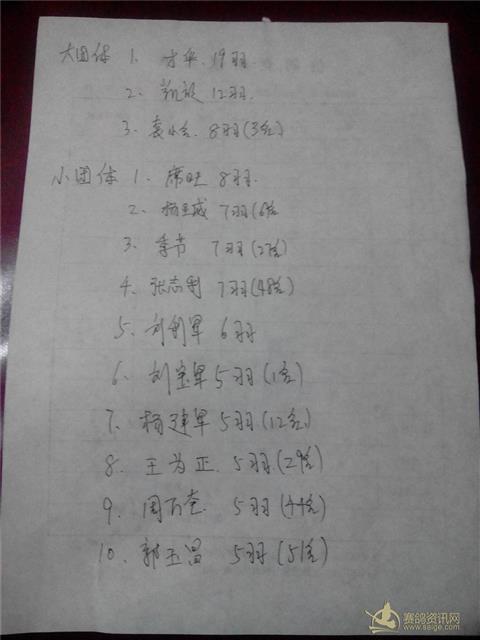 大团体 1. 才华. 19羽
2. 凯旋 12羽.
3. 袁小会. 8羽(3名)
小团体 1. 席旺 8羽.
2. 杨 威 7羽(6名
3. 季节 7羽(27名)
4. 张志利 7羽(48名)
5. 刘利军 6羽
6. 刘宝军 5羽(1名)
7. 杨建军 5羽(12名)
8. 王为正. 5羽(29名)
9. 周万奎. 5羽(44名)
10. 郭玉昌 5羽(51名)
赛鸽资讯网
www.saige.com